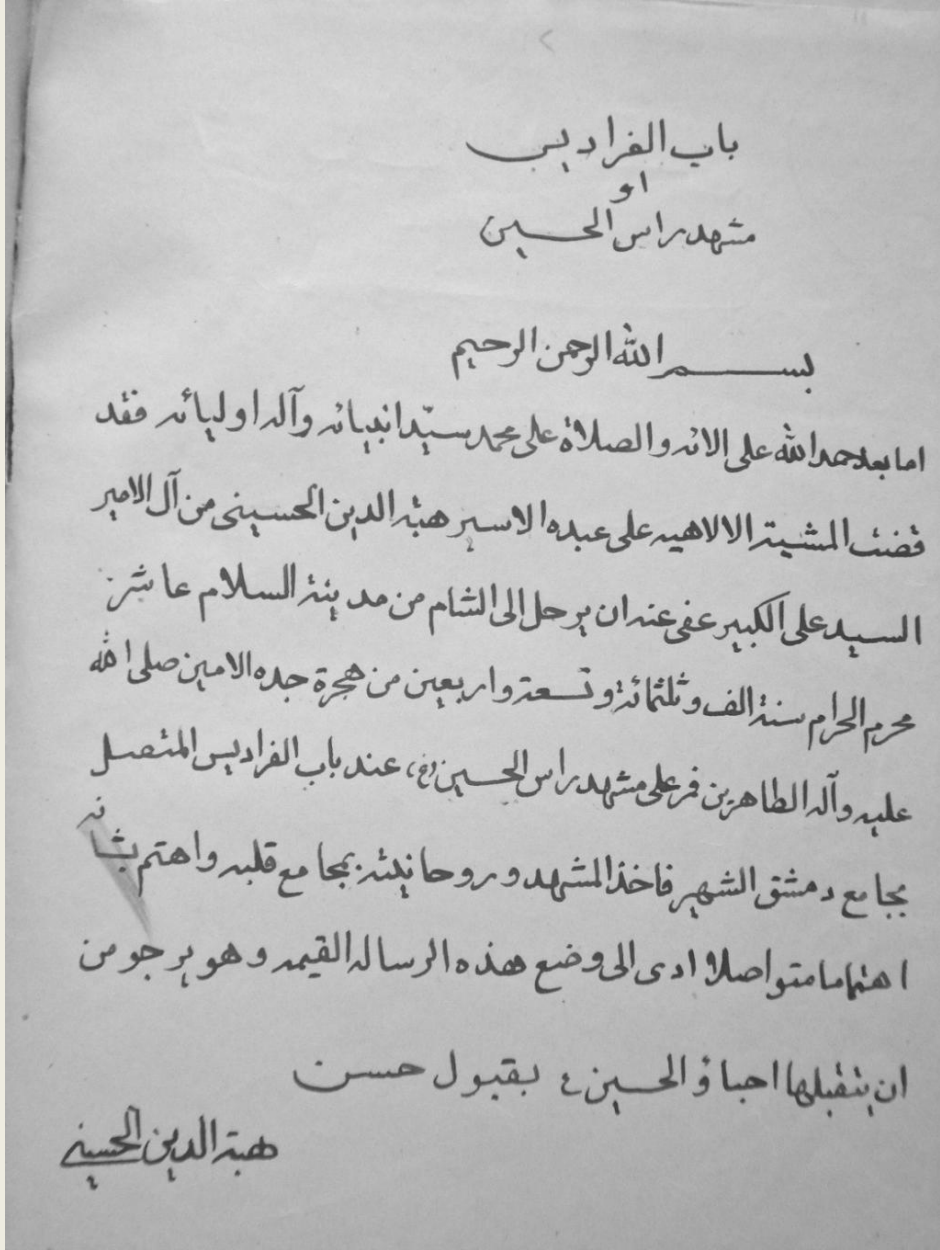 باب الفراديس
او
مشهد راس الحسين
بسم الله الرحمن الرحيم
اما بعد حمد الله على الائه والصلاة على محمد سيّد انبيائه وآله اوليائه فقد
قضت المشية الالاهيه على عبده الاسير هبة الدين الحسيني من آل الامير
السيد على الكبير عفى عنه ان يرحل الى الشام من مدينة السلام عاشر
محرم الحرام سنة الف وثلثمائة وتسعة واربعين من هجرة جده الامين صلى الله
عليه وآله الطاهرين فمر على مشهد راس الحسين (ع) عند باب الفراديس المتصل
بجامع دمشق الشهير فاخذ المشهد وروحانيته بمجامع قلبه واهتم بشانه
اهتماما متواصلا ادى الى وضع هذه الرساله القيمه وهو يرجو من
ان يتقبلها احباؤ الحسين ع بقبول حسن
هبة الدين الحسيني